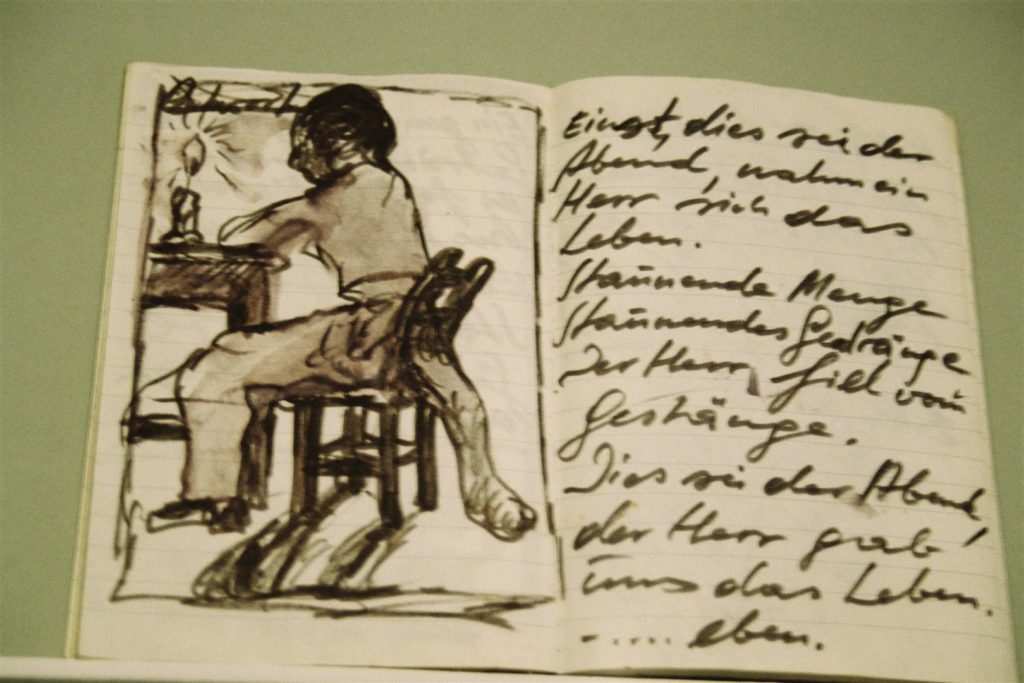 Einst, dies sei der
Abend, nahm ein
Herr sich das
Leben.
Staunende Menge
Staunendes Gedränge
Der Herr, fiel vom
Gestänge.
Dies sei der Abend,
der Herr gab
uns das Leben.
..... eben.